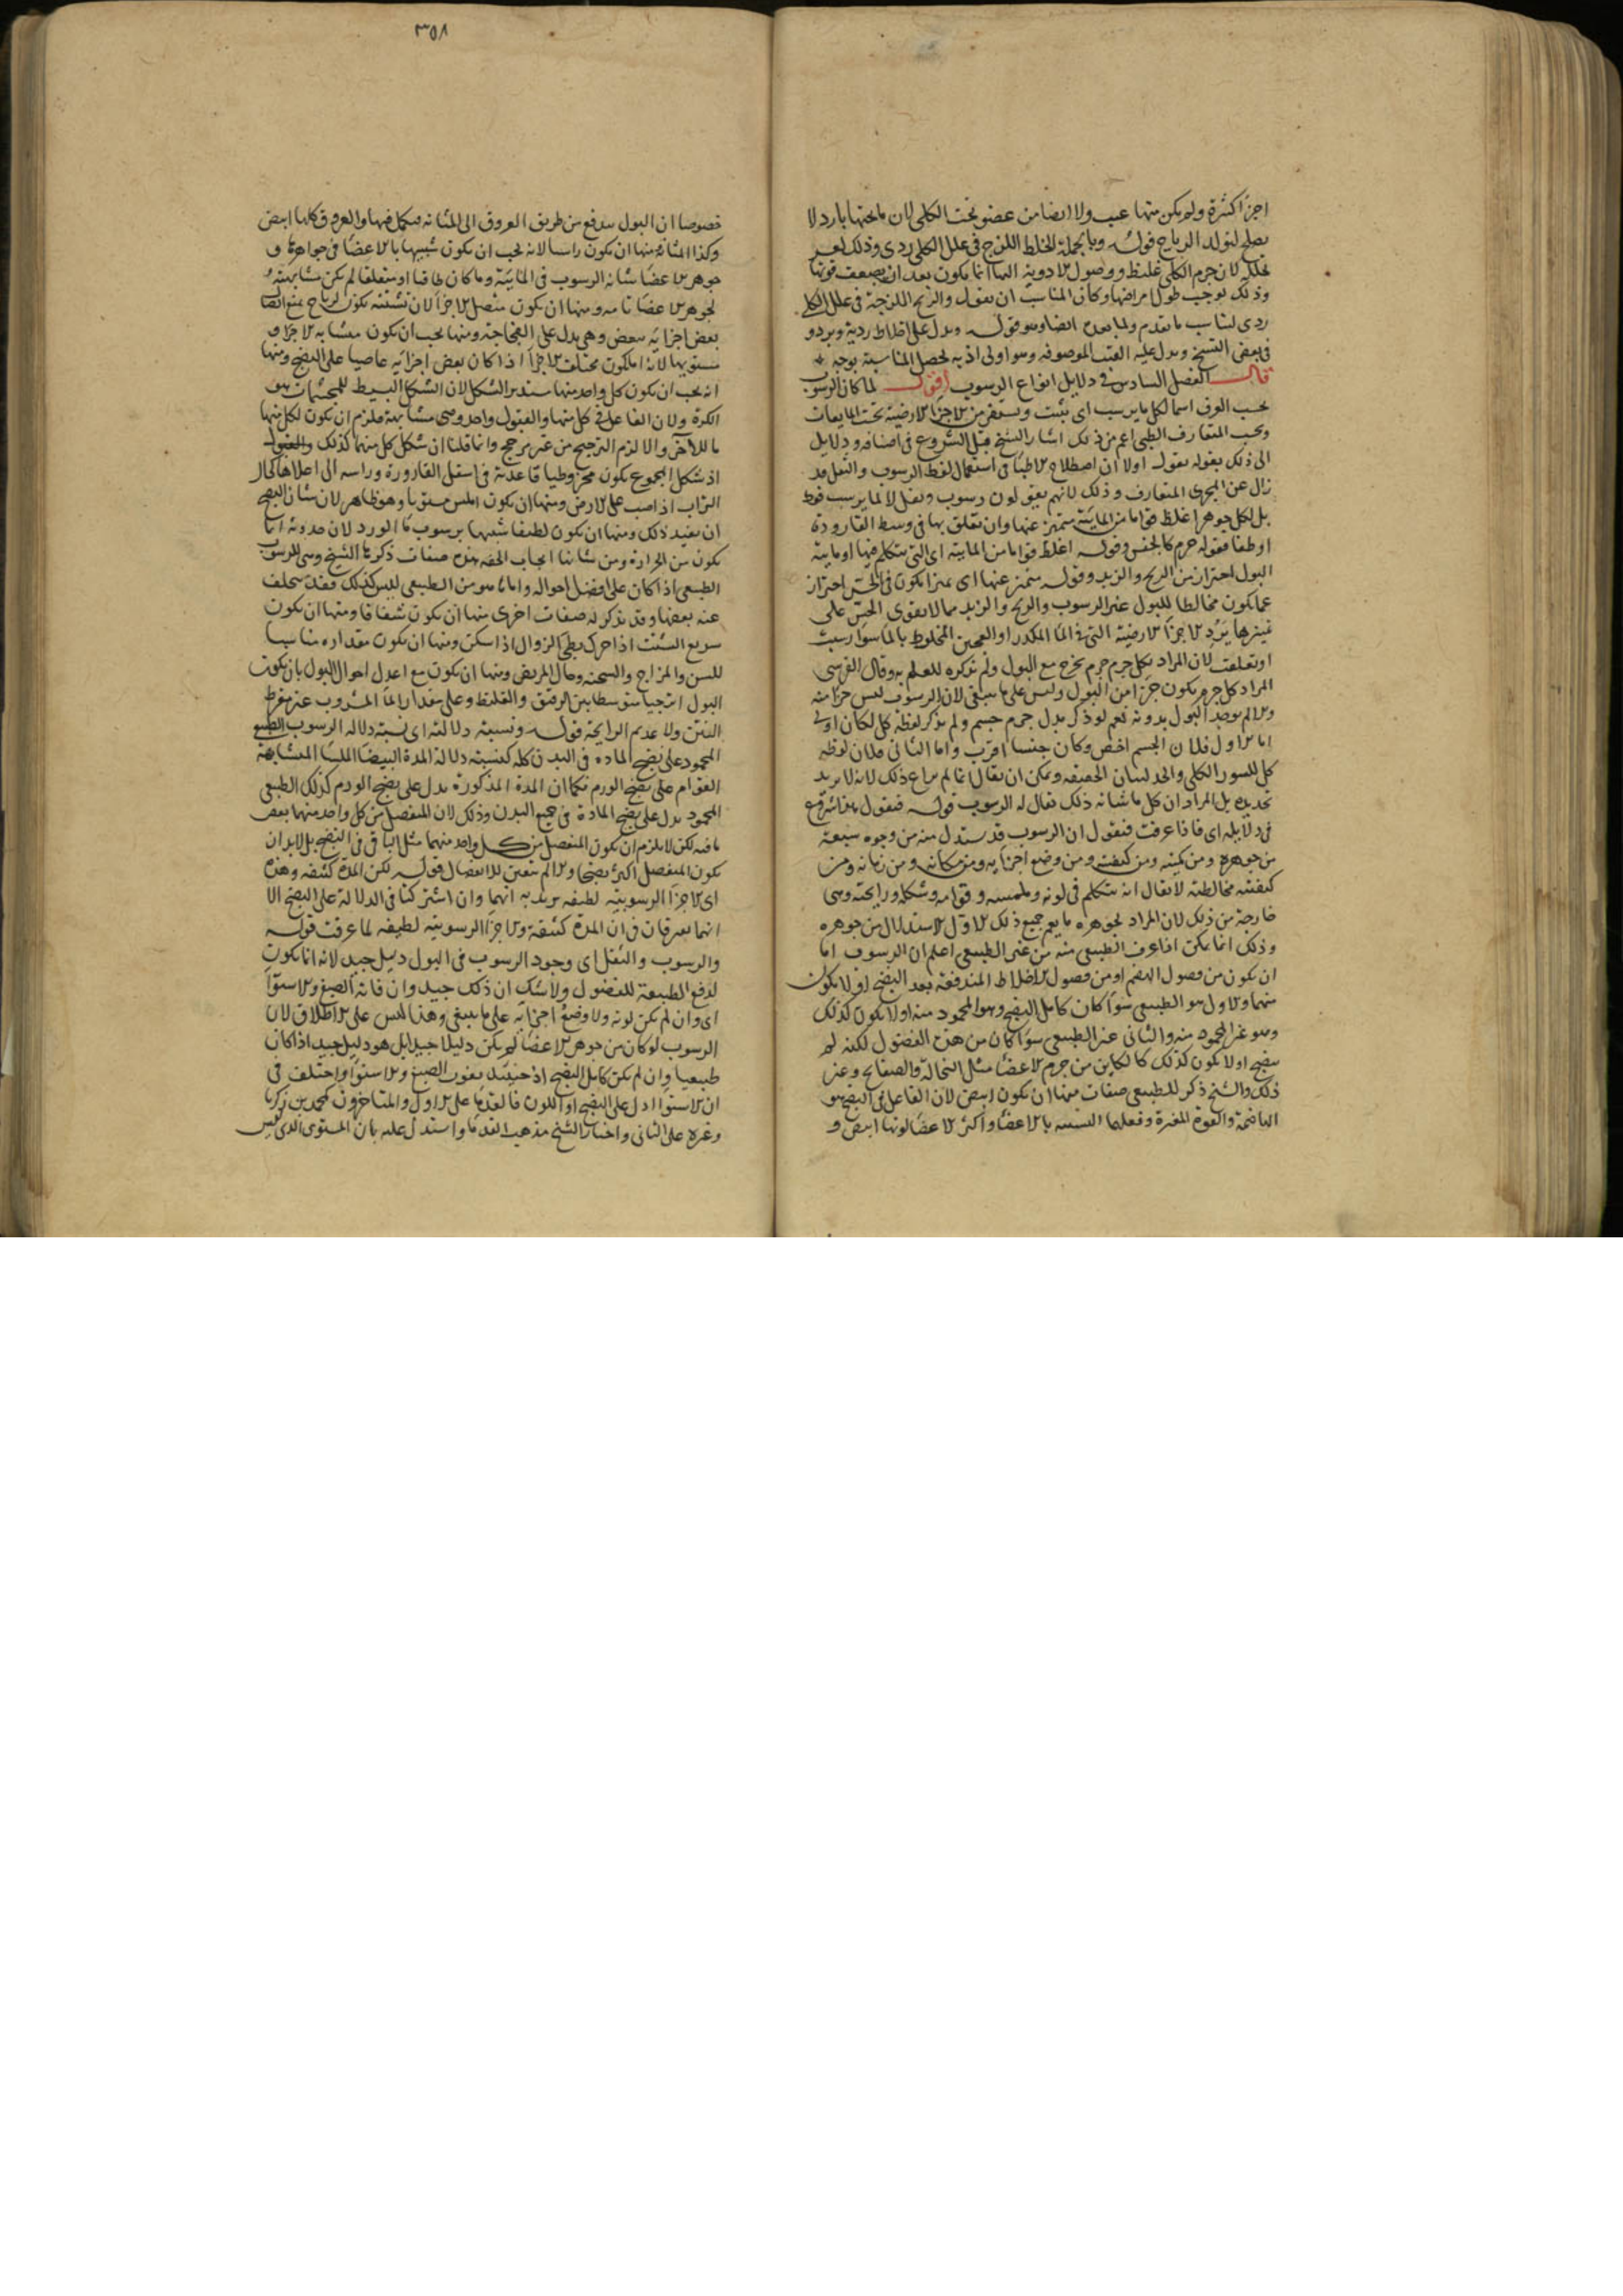 اجزآ كثيرة ولم يكن منها عيب ولا ايضا من عضو تحت الكلى لان ما تحتها بارد لا
يصلح لتولد الرياح قوله وبالجملة الخلط اللزج فى علل الكلى ردى وذلك لعسر
تحلله لان جرم الكلى غليظ ووصول الادوية اليها انما يكون بعد ان يضعف قوتها
وذلك يوجب طول امراضها وكان المناسب ان يقول والريح اللزجة فى علل الكلى
ردى ليناسب ما تقدم ولما بعده ايضا وهو قوله ويدل على اخلاط ردية وبرد و
فى بعض النسخ ويدل عليه العبب الموصوفه وهو اولى اذ به يحصل المناسبة بوجه
قال الفصل السادس فى دلايل انواع الرسوب اقول لما كان الرسوب
بحسب العرف اسما لكل ما يرسب اى يثبت ويستقر من الاجزآ الارضية تحت المايعات
وبحسب المتعارف الطبى اعم من ذلك اشار الشيخ قبل الشروع فى اصنافه ودلايل
الى ذلك بقوله نقول اولا ان اصطلاح الاطبآ فى استعمال لفظ الرسوب والثفل قد
زال عن المجرى المتعارف وذلك لانهم يقولون رسوب وثفل لا لما يرسب فقط
بل لكل جوهر اغلظ قواما من المايية متميز عنها وان تعلق بها فى وسط القارورة
او طفا فقوله جرم كالجنس وقوله اغلظ قواما من المايية اى التى يتكلم فيها او مايية
البول احتراز من الريح والزبد وقوله متميز عنها اى تميزا يكون فى الحس احتراز
عما يكون مخالطا للبول غير الرسوب والريح والزبد مما لا يقوى الحس على
تمييزها يَرُد الاجزآ الارضية التى فى المآ المكدر او العجين المخلوط بالمآ سوآ رسبت
او تعلقت لان المراد بكل جرم جرم يخرج مع البول ولم يذكره للعلم به وقال القرشى
المراد كل جرم يكون جزآ من البول وليس على ما ينبغى لان الرسوب ليس جزآ منه
والا لم يوجد البول بدونه نعم لو ذكر بدل جرم جسم ولم يذكر لفظة كل لكان اولى
اما الاول فلان الجسم اخص وكان جنسا اقرب واما الثانى فلان لفظه
كل للسور الكلى والحد لبيان الحقيقه ويمكن ان يقال انما لم يراع ذلك لانه لا يريد
تحديده بل المراد ان كل ما شانه ذلك يقال له الرسوب قوله فنقول هذا شروع
فى دلايله اى فاذا عرفت فنقول ان الرسوب قد يستدل منه من وجوه سبعة
من جوهره ومن كميته ومن كيفيته ومن وضع اجزآيه ومن مكانه ومن زمانه ومن
كيفيته مخالطته لا يقال انه يتكلم فى لونه وملمسه وقوامه وشكله ورايحته وهى
خارجة من ذلك لان المراد بجوهره ما يعم جميع ذلك الاول الاستدلال من جوهره
وذلك انما يمكن اذا عرف الطبيعى منه من غير الطبيعى اعلم ان الرسوب اما
ان يكون من فضول الهضم او من فضول الاخلاط المندفعة بعد النضج او لا يكون
منهما والاول هو الطبيعى سوآ كان كامل النضج وهو المحمود منه او لا يكون كذلك
وهو غير المحمود منه والثانى غير الطبيعى سوآ كان من هذه الفضول لكنه لم
ينضج او لا يكون كذلك كالكاين من جرم الاعضآ مثل النخالة والصفايح وغير
ذلك والشيخ ذكر للطبيعى صفات منها ان يكون ابيض لان الفاعل فى النضج هو
الهاضمة والقوة المغيرة وفعلهما التشبيه بالاعضآ واكثر الاعضآ لونها ابيض و
٣٥٨
خصوصا ان البول يندفع من طريق العروق الى المثانه فيكمل فيها والعروق كلها ابيض
وكذا المثانة ومنها ان يكون راسبا لانه يجب ان يكون شبيها بالاعضآ فى جواهرها و
جوهر الاعضآ شانه الرسوب فى المايية وما كان طافيا او متعلقا لم يكن مشابهته
لجوهر الاعضآ تامه ومنها ان يكون متصل الاجزآ لان تشتته يكون لرياح تمنع اتصال
بعض اجزآيه ببعض وهى يدل على الفجاجة ومنها يجب ان يكون متشابه الاجزآ و
مستويها لانه انما يكون مختلف الاجزآ اذا كان بعض اجزآيه عاصيا على النضج ومنها
انه يجب ان يكون كل واحد منها مستدير الشكل لان الشكل البسيط للمجسمات هو
الكرة ولان الفاعل فى كل منها والقبول واحد وهى متشابهة فلزم ان يكون لكل منها
ما للآخر والا لزم الترجيح من غير مرجح وانما قلنا ان شكل كل منها كذلك والقول
اذ شكل المجموع يكون مخروطيا قاعدته فى اسفل القارورة وراسه الى اعلاها كحال
التراب اذا صب على الارض ومنها ان يكون املس مستويا وهو ظاهر لان شان النضج
ان يفيد ذلك ومنها ان يكون لطيفا شبيها برسوب مآ الورد لان حدوثه انما
يكون من الحرارة ومن شانها ايجاب الخفه هذه صفات ذكرها الشيخ وهى للرسوب
الطبيعى اذا كان على افضل احواله واما ما هو من الطبيعى ليس كذلك فقد يتخلف
عنه بعضها وقد يذكر له صفات اخرى منها ان يكون شفافا ومنها ان يكون
سريع التشتت اذا حرك بطى الزوال اذا سكن ومنها ان يكون مقداره مناسبا
للسن والمزاج والسحنه وحال المريض ومنها ان يكون مع اعدل احوال البول بان يكون
البول اترجيا متوسطا بين الرقيق والغليظ وعلى مقدار المآ المشروب غير مفرط
النتن ولا عديم الرايحة قوله ونسبته دلالته اى نسبته دلاله الرسوب الطبيعى
المحمود على نضج المادة فى البدن كله كنسبته دلالة المدة البيضآ الملسآ المتشابهة
القوام على نضج الورم فكما ان المدة المذكورة تدل على نضج الورم كذلك الطبيعى
المحمود يدل على نضج المادة فى جميع البدن وذلك لان المنفصل من كل واحد منهما بعض
ما فيه لكن لا يلزم ان يكون المنفصل من كل واحد منهما مثل الباقى فى النضج بل لابد ان
يكون المنفصل اكثر نضجا والا لم يتعين للانفصال قوله لكن المدة كثيفه وهذه
اى الاجزآ الرسوبيه لطيفه يريد به انهما وان اشتركتا فى الدلالة على النضج الا
انهما يفترقان فى ان المدة كثيفة والاجزآ الرسوبيه لطيفه لما عرفت قوله
والرسوب والثفل اى وجود الرسوب فى البول دليل جيد لانه انما يكون
لدفع الطبيعة للفضول ولا شك ان ذلك جيد وان فاته الصبغ والاستوآ
اى وان لم يكن لونه ولا وضع اجزآيه على ما ينبغى وهذا ليس على الاطلاق لان
الرسوب لو كان من جوهر الاعضآ لم يكن دليلا جيدا بل هو دليل جيد اذا كان
طبيعيا وان لم يكن كامل النضج اذ حينئذ يفوت الصبغ والاستوآ واختلف فى
ان الاستوآ ادل على النضج او اللون فالقدمآ على الاول والمتاخرون كمحمد بن زكريا
وغيره على الثانى واختار الشيخ مذهب القدمآ واستدل عليه بان المستوى الذى ليس